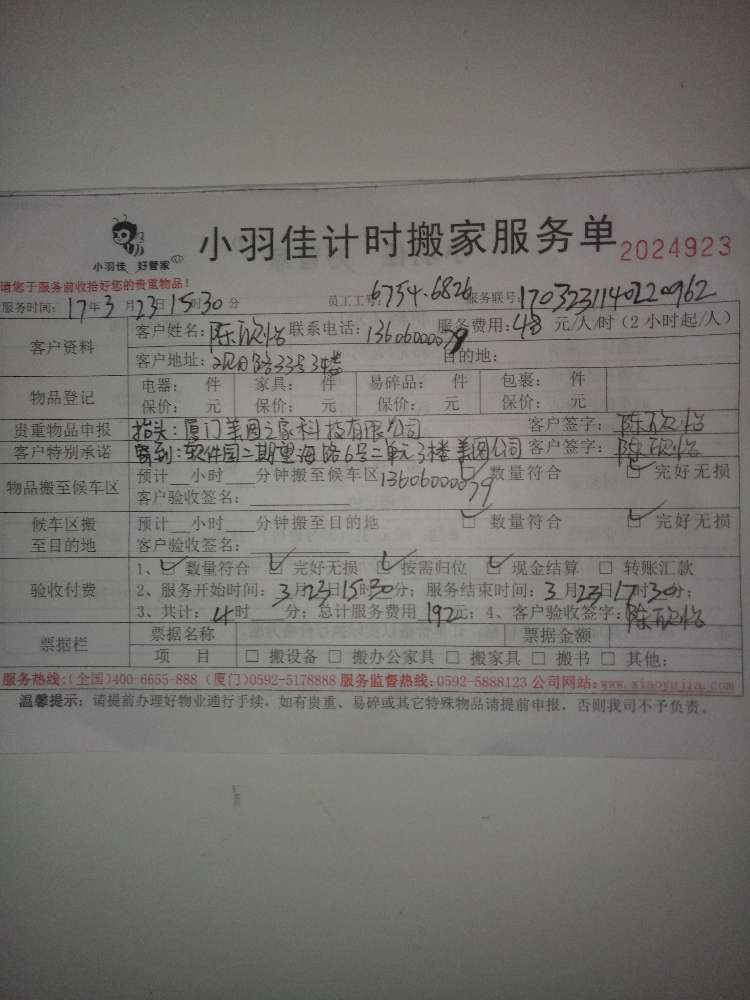 小羽佳 好管家
小羽佳计时搬家服务单 2024923
请您于服务前收拾好您的贵重物品！
服务时间：17年3月23日15时30分 员工工号：6754.6826 服务联号：1703231140220962
客户资料 客户姓名：陈欣怡 联系电话：13606000079 服务费用：48元/人/时（2小时起/人）
客户地址：观日路33号3楼 目的地：
物品登记 电器： 件 家具： 件 易碎品： 件 包裹： 件
保价： 元 保价： 元 保价： 元 保价： 元
贵重物品申报 抬头：厦门美图之家科技有限公司 客户签字：陈欣怡
客户特别承诺 寄到：软件园二期望海路6号二单元3楼美图公司 客户签字：陈欣怡
物品搬至候车区 预计__小时___分钟搬至候车区 13606000079 ☑ 数量符合 ☑ 完好无损
客户验收签名：
候车区搬至目的地 预计__小时___分钟搬至目的地 ☑ 数量符合 ☑ 完好无损
客户验收签名：
验收付费 1、☑ 数量符合 ☑ 完好无损 ☑ 按需归位 ☑ 现金结算 □ 转账汇款
2、服务开始时间：3月23日15时30分；服务结束时间：3月23日17时30分；
3、共计：4时___分；总计服务费用192元；4、客户验收签字：陈欣怡
票据栏 票据名称 票据金额
项 目 □ 搬设备 □ 搬办公家具 □ 搬家具 □ 搬书 □ 其他：
服务热线：（全国）400-6655-888（厦门）0592-5178888 服务监督热线：0592-5888123 公司网站：www.xiaoyujia.com
温馨提示：请提前办理好物业通行手续，如有贵重、易碎或其它特殊物品请提前申报，否则我司不予负责。